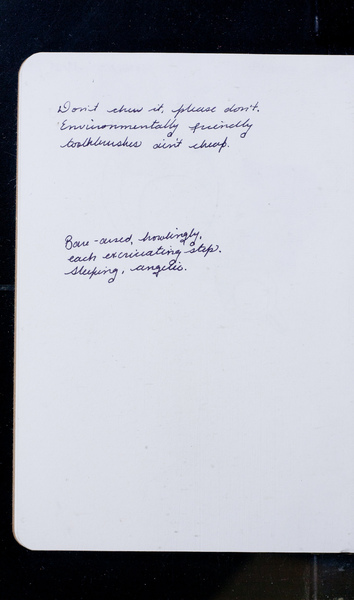 Don't chew it, please don't.
Environmentally friendly
toothbrushes ain't cheap.
Bare-arsed, howlingly,
each excruciating step.
Sleeping, angelic.